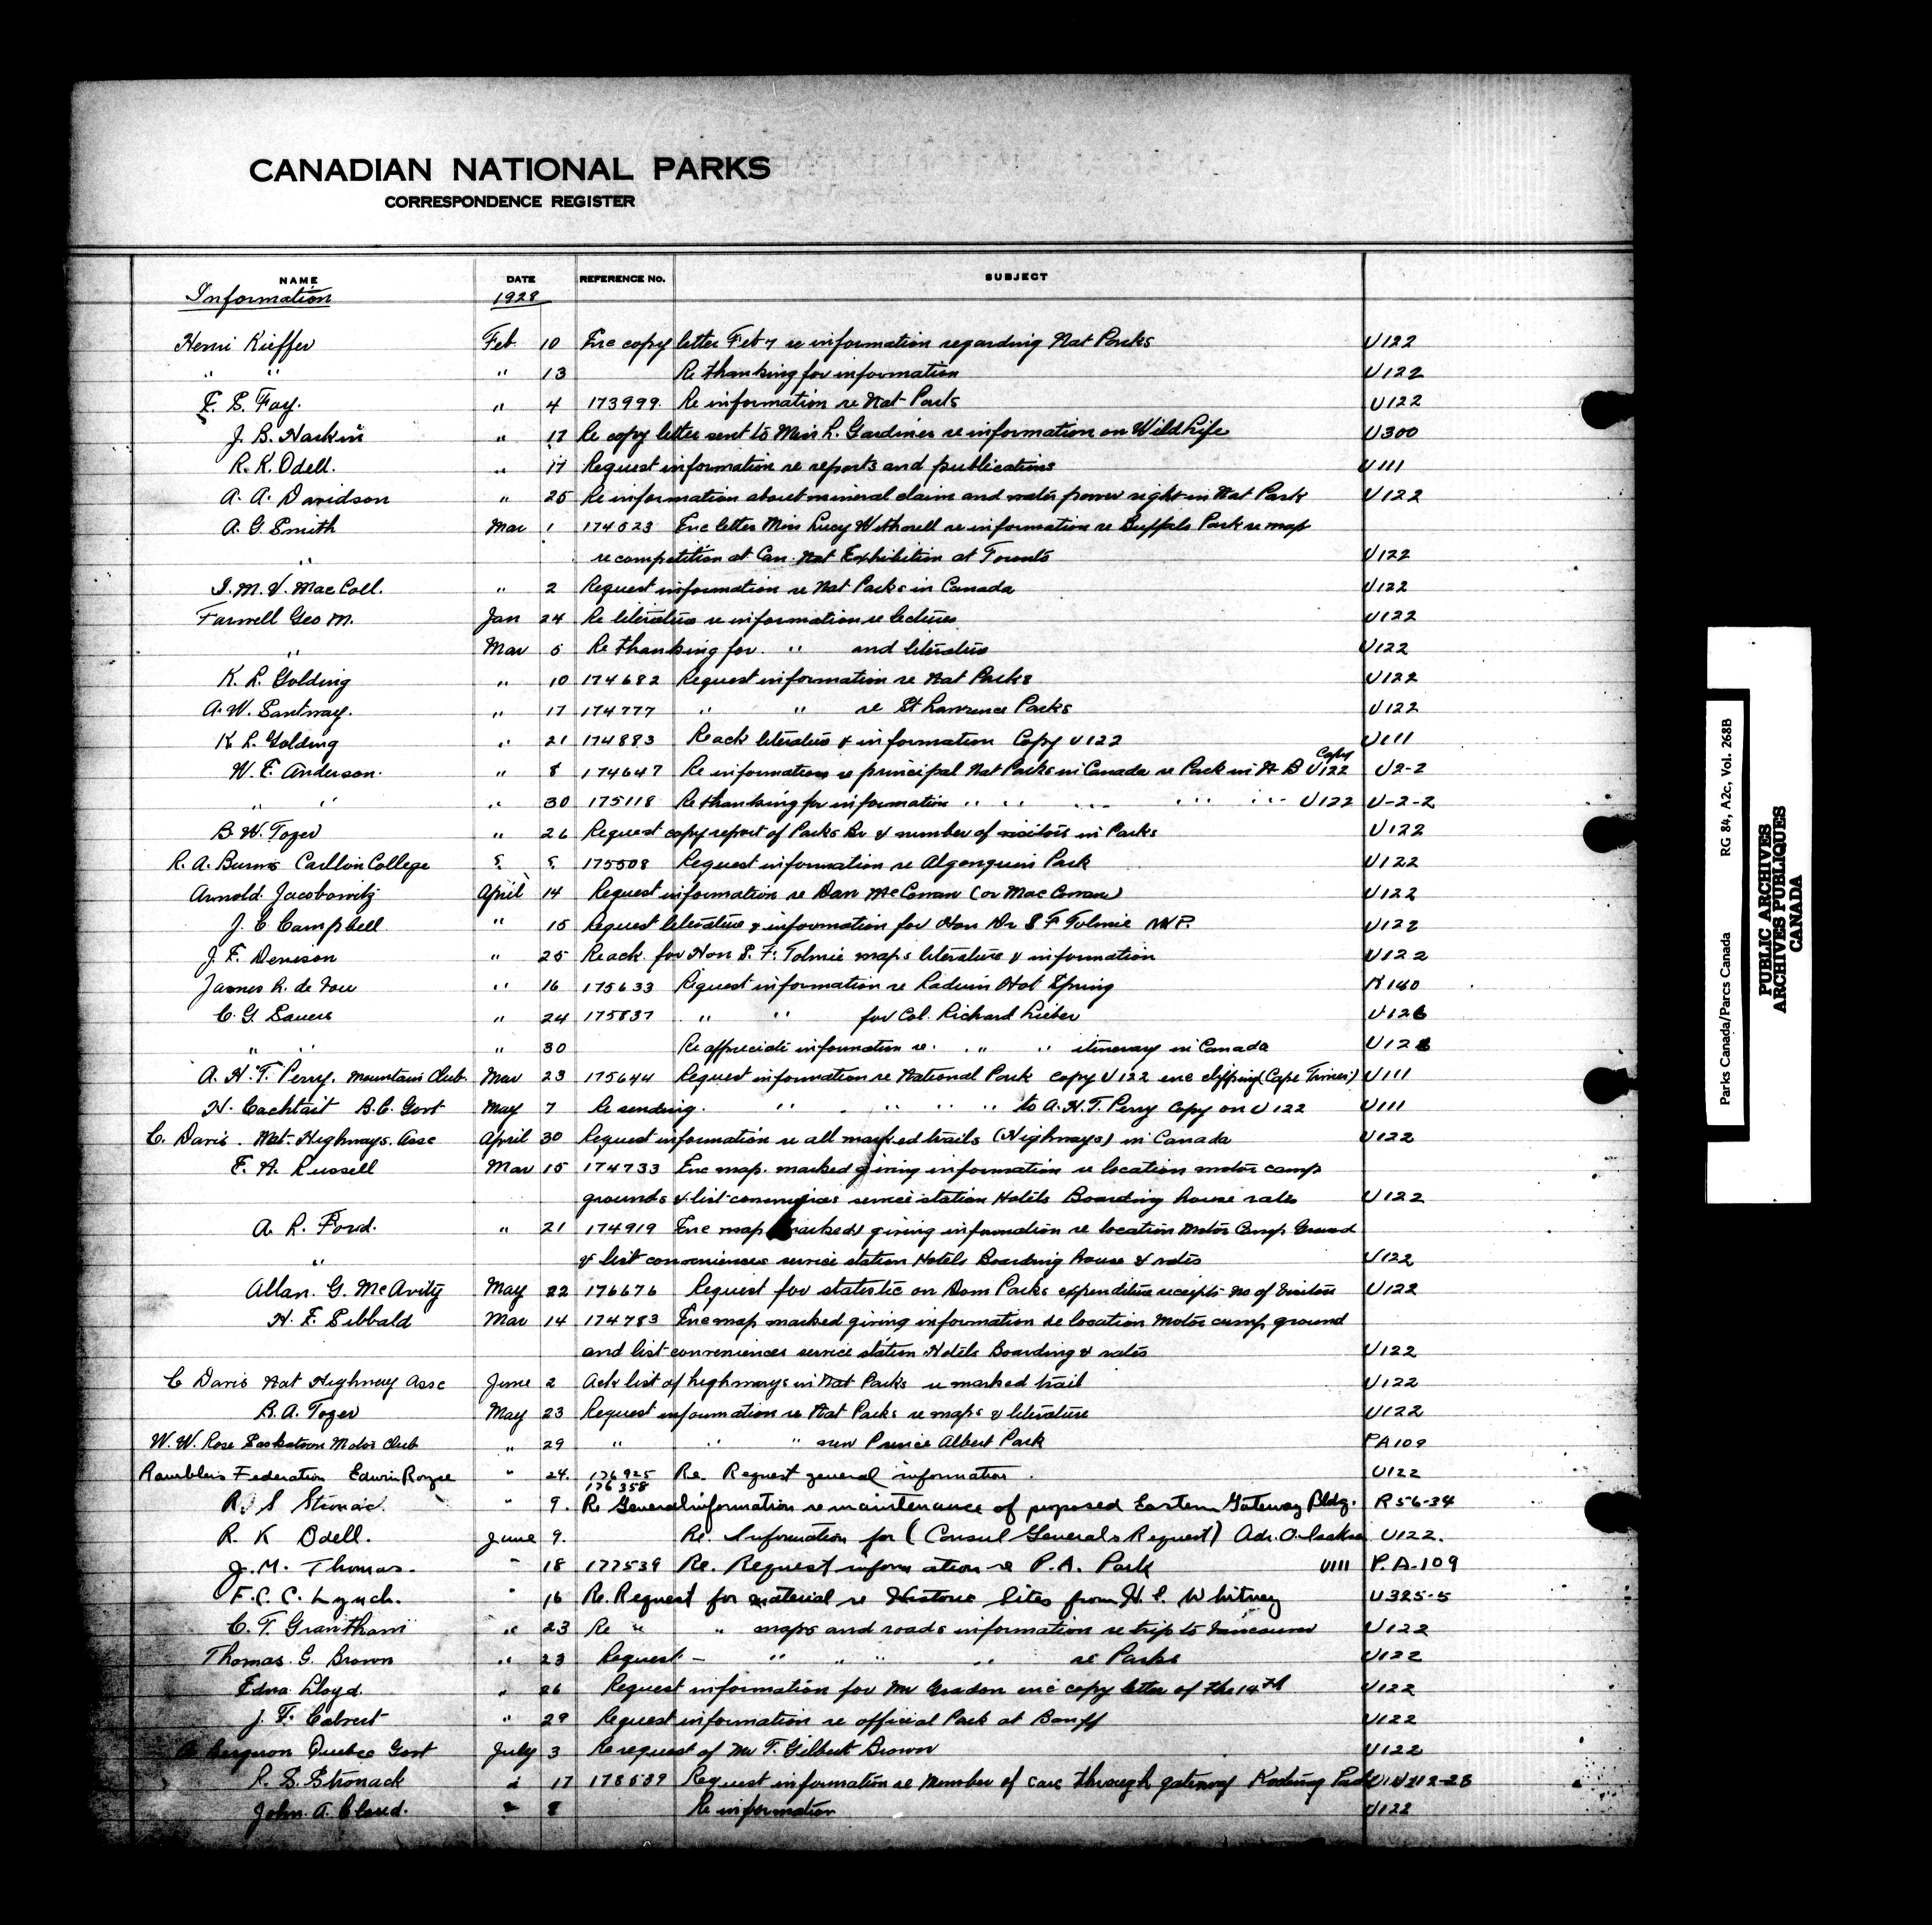 CANADIAN NATIONAL PARKS
CORRESPONDENCE REGISTER
NAME DATE REFERENCE No. SUBJECT
Information 1928
Henri Kieffer Feb 10 Enc copy letter Feb 7 re information regarding Nat Parks U122
" " " 13 Re thanking for information U122
F. S. Fay. " 4 173999 Re information re Nat Parks U122
J. B. Harkin " 17 Re copy letter sent to Miss L. Gardiner re information on Wild Life U300
R. K. Odell. " 17 Request information re reports and publications U111
A. A. Davidson " 25 Re information about mineral claim and water power right in Nat Park U122
A. G. Smith Mar 1 174523 Enc letter Miss Lucy re information re Buffalo Park re map
" re competition at Can. Nat Exhibition at Toronto U122
I. M. V. MacColl. " 2 Request information re Nat Parks in Canada U122
Farwell Geo M. Jan 24 Re literature re information re lectures U122
" Mar 5 Re thanking for " and literature U122
K. L. Golding " 10 174682 Request information re Nat Parks U122
A. W. Santway. " 17 174777 " " re St Lawrence Parks U122
K. L. Golding " 21 174883 Re ack literature & information Copy U122 U111
W. E. Anderson. " 8 174647 Re information re principal Nat Parks in Canada re Park in N B Copy U122 U2-2
" " " 30 175118 Re thanking for information " " " " " U122 U-2-2
B. W. Tozer " 26 Request copy report of Parks Br & number of visitors in Parks U122
R. A. Burns Carlton College ? ? 175508 Request information re Algonquin Park U122
Arnold Jacobowitz April 14 Request information re Dan McCowan (or MacCowan) U122
J. C. Campbell " 15 Request literature & information for Hon Dr S F Tolmie M.P. U122
J. E. Denison " 25 Re ack for Hon S. F. Tolmie maps literature & information U122
James L. de " 16 175633 Request information re Radium Hot Spring K160
C. G. Sauers " 24 175837 " " for Col. Richard Lieber U126
" " " 30 Re appreciate information re. " " itinerary in Canada U126
A. H. T. Perry. Mountain Club. Mar 23 175644 Request information re National Park copy U122 enc clipping (Cape Times) U111
N. Cachtait B.C. Govt May 7 Re sending. " " " " to A. H. T. Perry Copy on U122 U111
C. Davis. Nat. Highways. Assc April 30 Request information re all marked trails (Highways) in Canada U122
E. A. Russell Mar 15 174733 Enc map. marked giving information re location motor camp
grounds & list conveniences service station Hotels Boarding house rates U122
A. L. Ford. " 21 174919 Enc map marked giving information re location Motor Camp Ground
" & list conveniences service station Hotels Boarding house & rates U122
Allan. G. McAvity May 22 176676 Request for statistic on Dom Parks expenditure receipts No of Visitors U122
H. E. Sibbald Mar 14 174783 Enc map marked giving information re location Motor camp ground
and list conveniences service station Hotels Boarding & rates U122
C Davis Nat Highway Assc June 2 Ack list of highways in Nat Parks re marked trail U122
B. A. Tozer May 23 Request information re Nat Parks re maps & literature U122
W. W. Rose Saskatoon Motor Club " 29 " " " new Prince Albert Park PA109
Ramblers Federation Edwin Royce " 24. 176925 Re. Request general information. U122
R. S Stronac. " 9. 176358 Re General information re maintenance of proposed Eastern Gateway Bldg. R56-34
R. K Odell. June 9. Re. Information for (Consul Generals Request) Adr. O. U122.
J. M. Thomas. " 18 177539 Re. Request information re P. A. Park U111 P.A-109
F. C. C. Lynch. " 16 Re. Request for material re Historic Sites from H. C. Whitney U325-5
C. T. Grantham " 23 Re " " maps and roads information re trip to Vancouver U122
Thomas. G. Brown " 23 Request - " " " " re Parks U122
Edna Lloyd. " 26 Request information for Mr Gradon enc copy letter of the 14th U122
J. T. Calvert " 29 Request information re official Park at Banff U122
Bergeron Quebec Govt July 3 Re request of Mr T. Gilbert Brown U122
R. S. Stronack " 17 178539 Request information re Number of cars through gateway Kootenay Park U212-28
John. A. Cloud. " 8 Re information U122
Parks Canada/Parcs Canada RG 84, A2c, Vol. 268B
PUBLIC ARCHIVES
ARCHIVES PUBLIQUES
CANADA